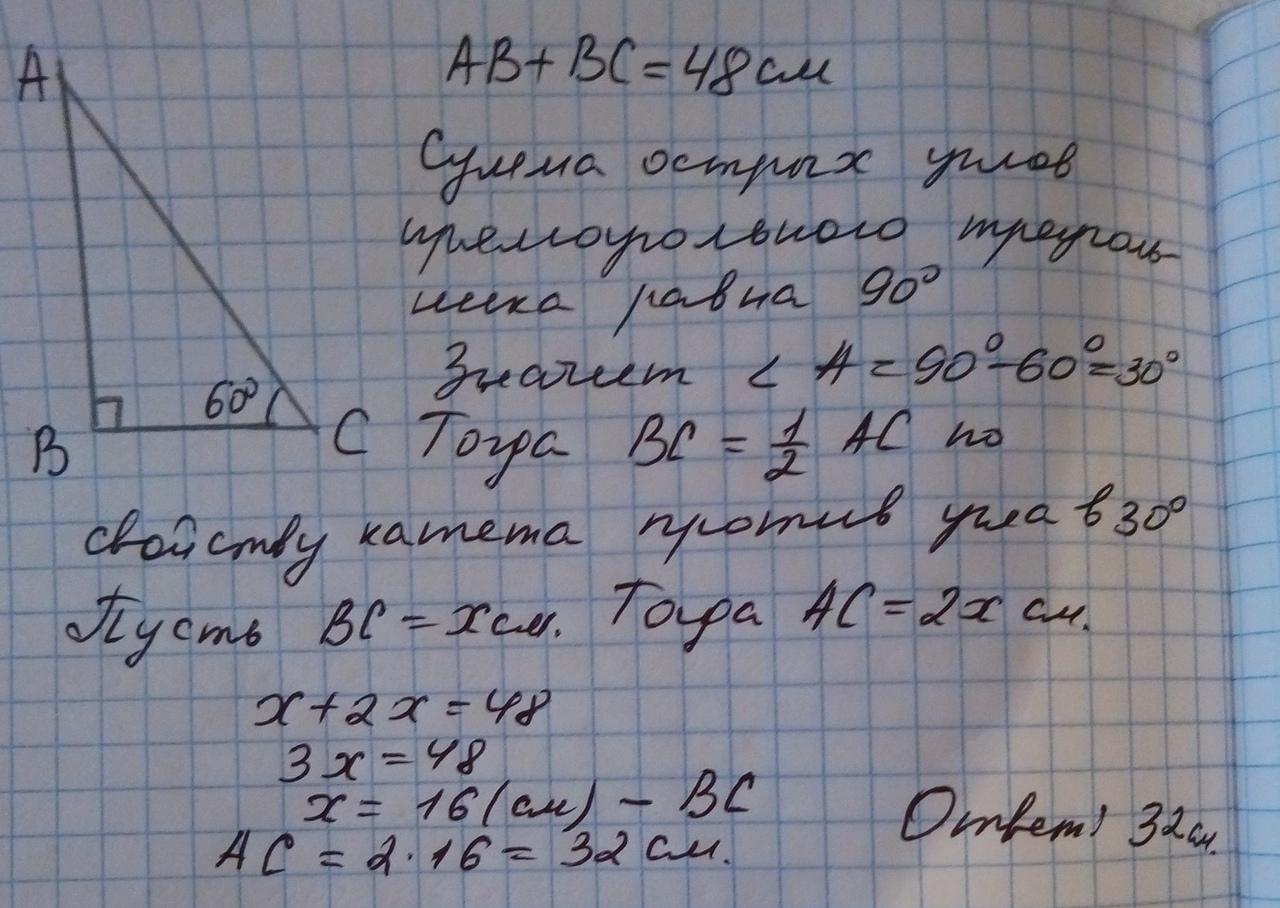 A
AB + BC = 48 см
Сумма острых углов
прямоугольного треуголь-
ника равна 90°
Значит < A = 90° - 60° = 30°
60°
B
C
Тогда BC = 1/2 AC по
свойству катета против угла в 30°
Пусть BC = x см. Тогда AC = 2x см.
x + 2x = 48
3x = 48
x = 16 (см) - BC
AC = 2 · 16 = 32 см.
Ответ: 32 см.